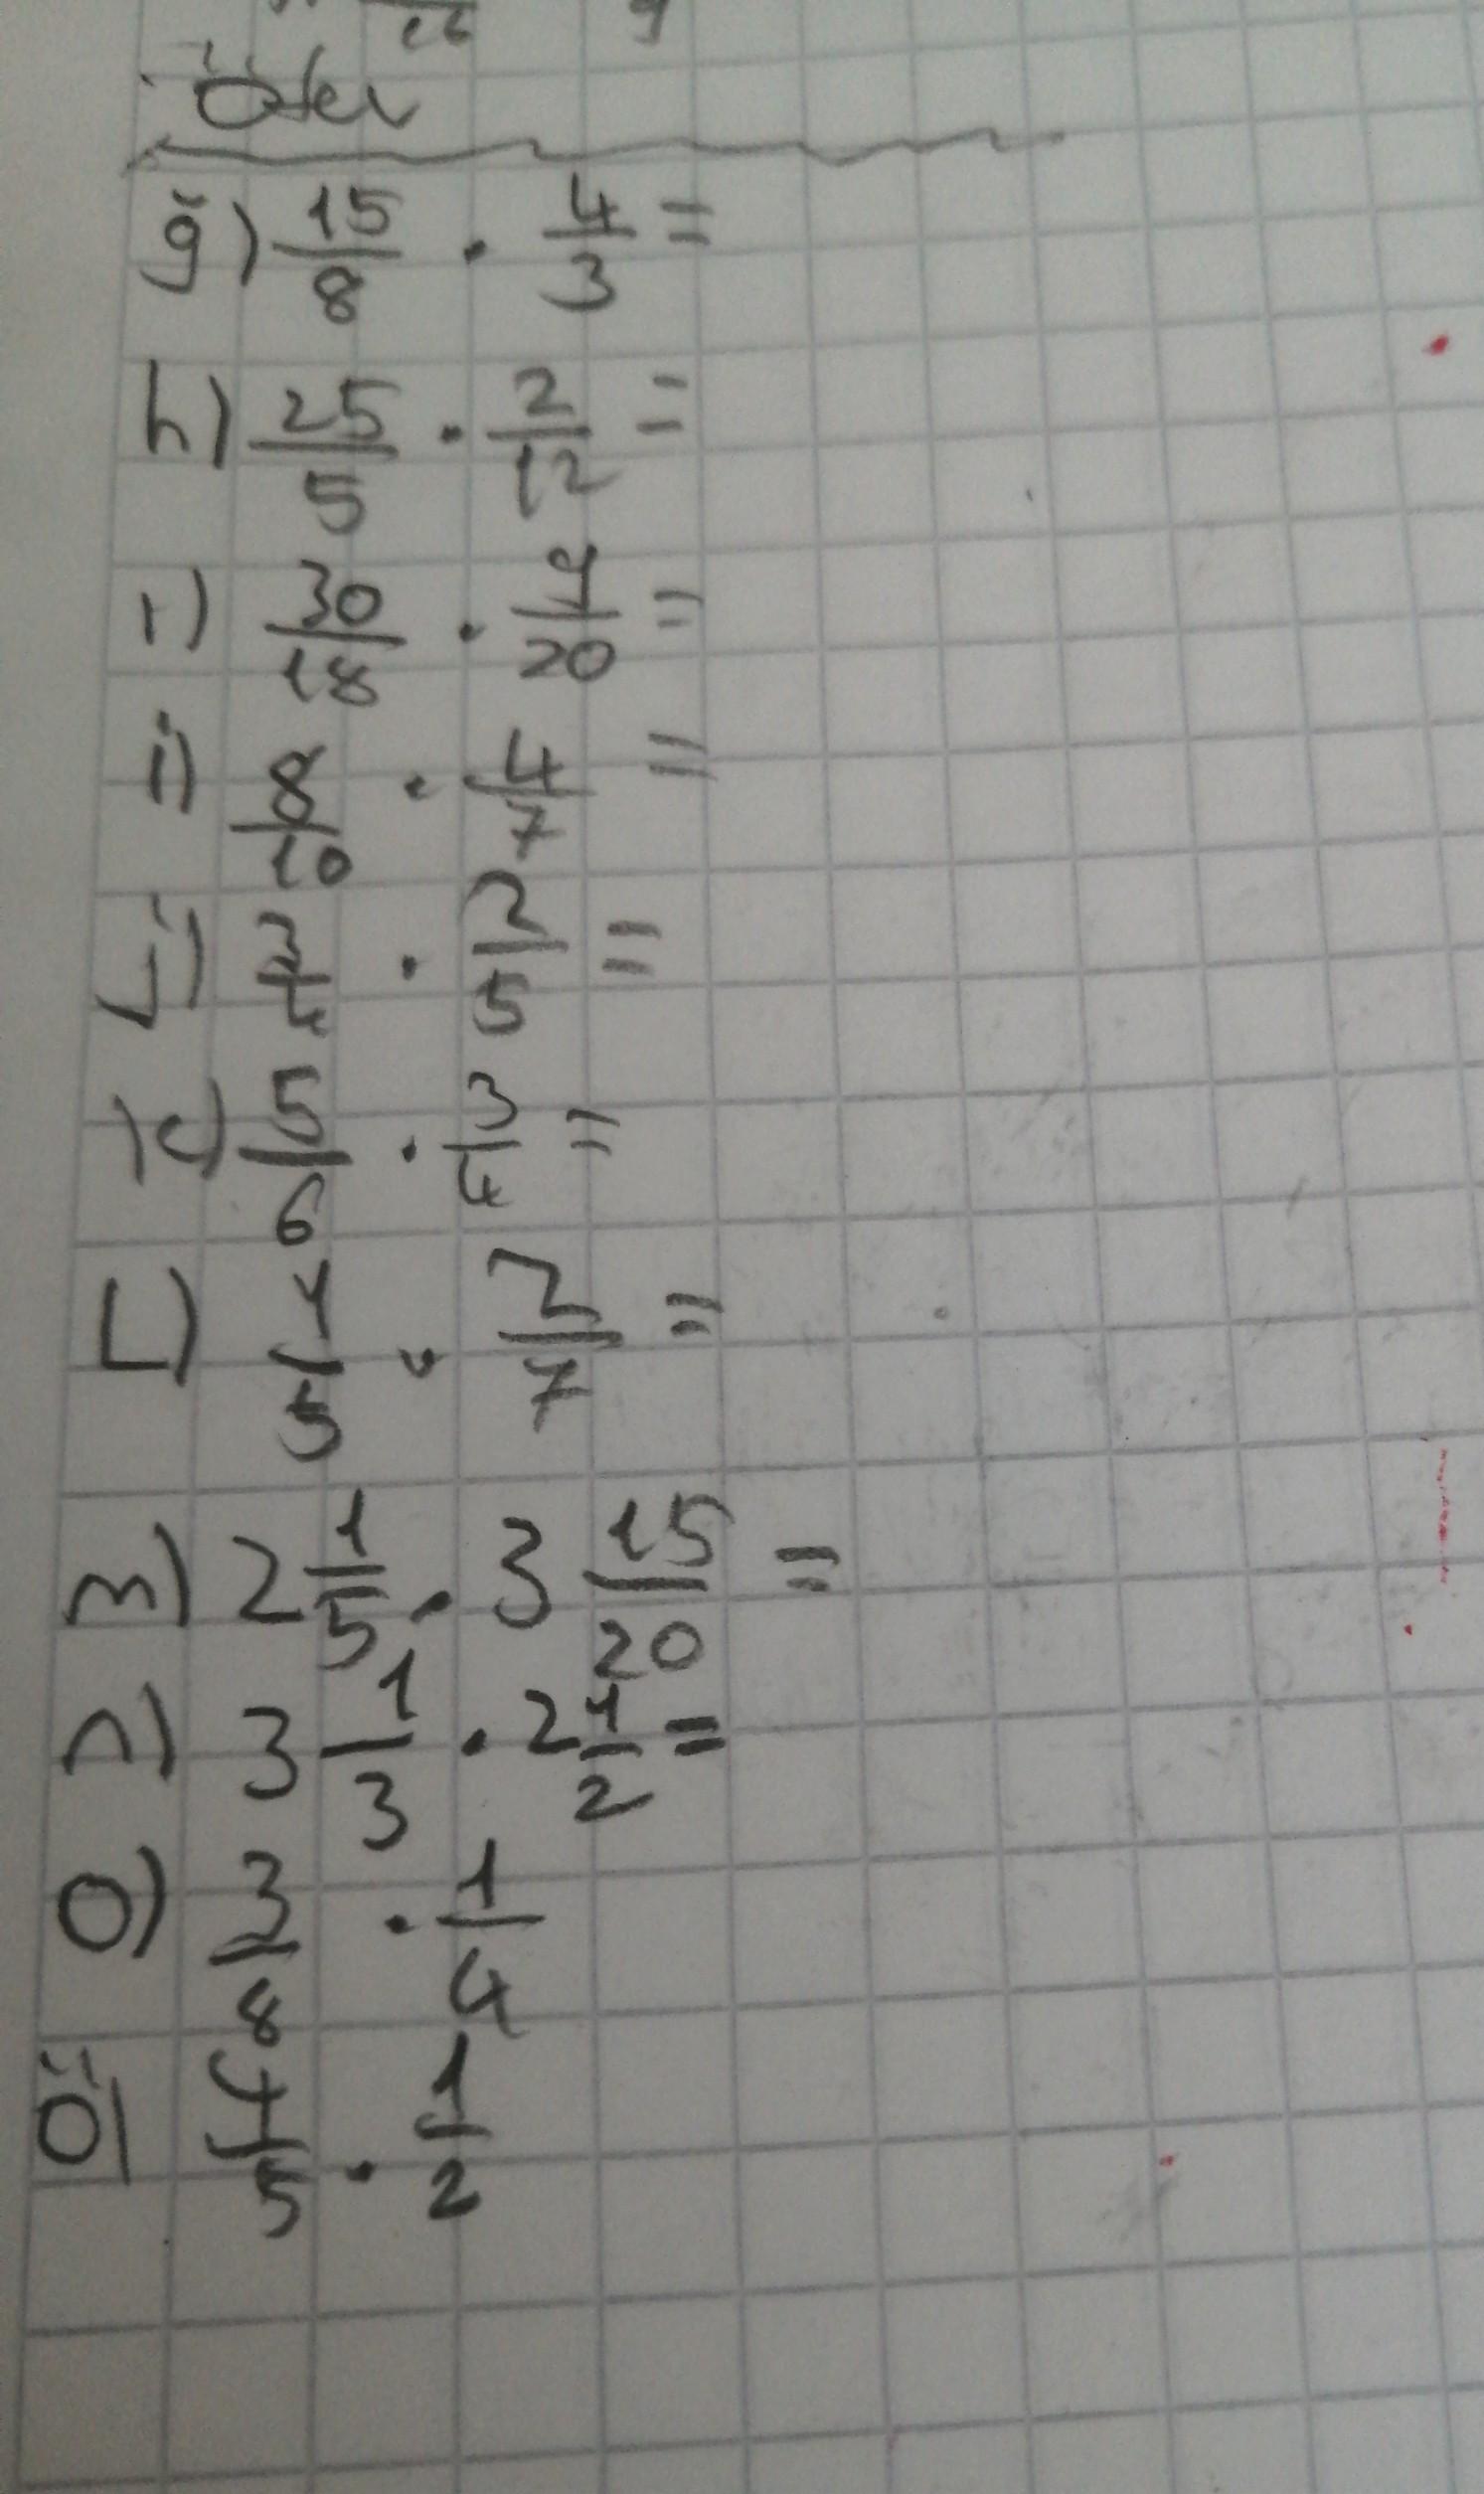 16 9
Ödev
ğ) 15/8 · 4/3 =
h) 25/5 · 2/12 =
ı) 30/18 · 9/20 =
i) 8/10 · 4/7 =
j) 3/4 · 2/5 =
k) 5/6 · 3/4 =
L) 1/5 · 2/7 =
m) 2 1/5 · 3 15/20 =
n) 3 1/3 · 2 1/2 =
o) 3/8 · 1/4
ö) 4/5 · 1/2